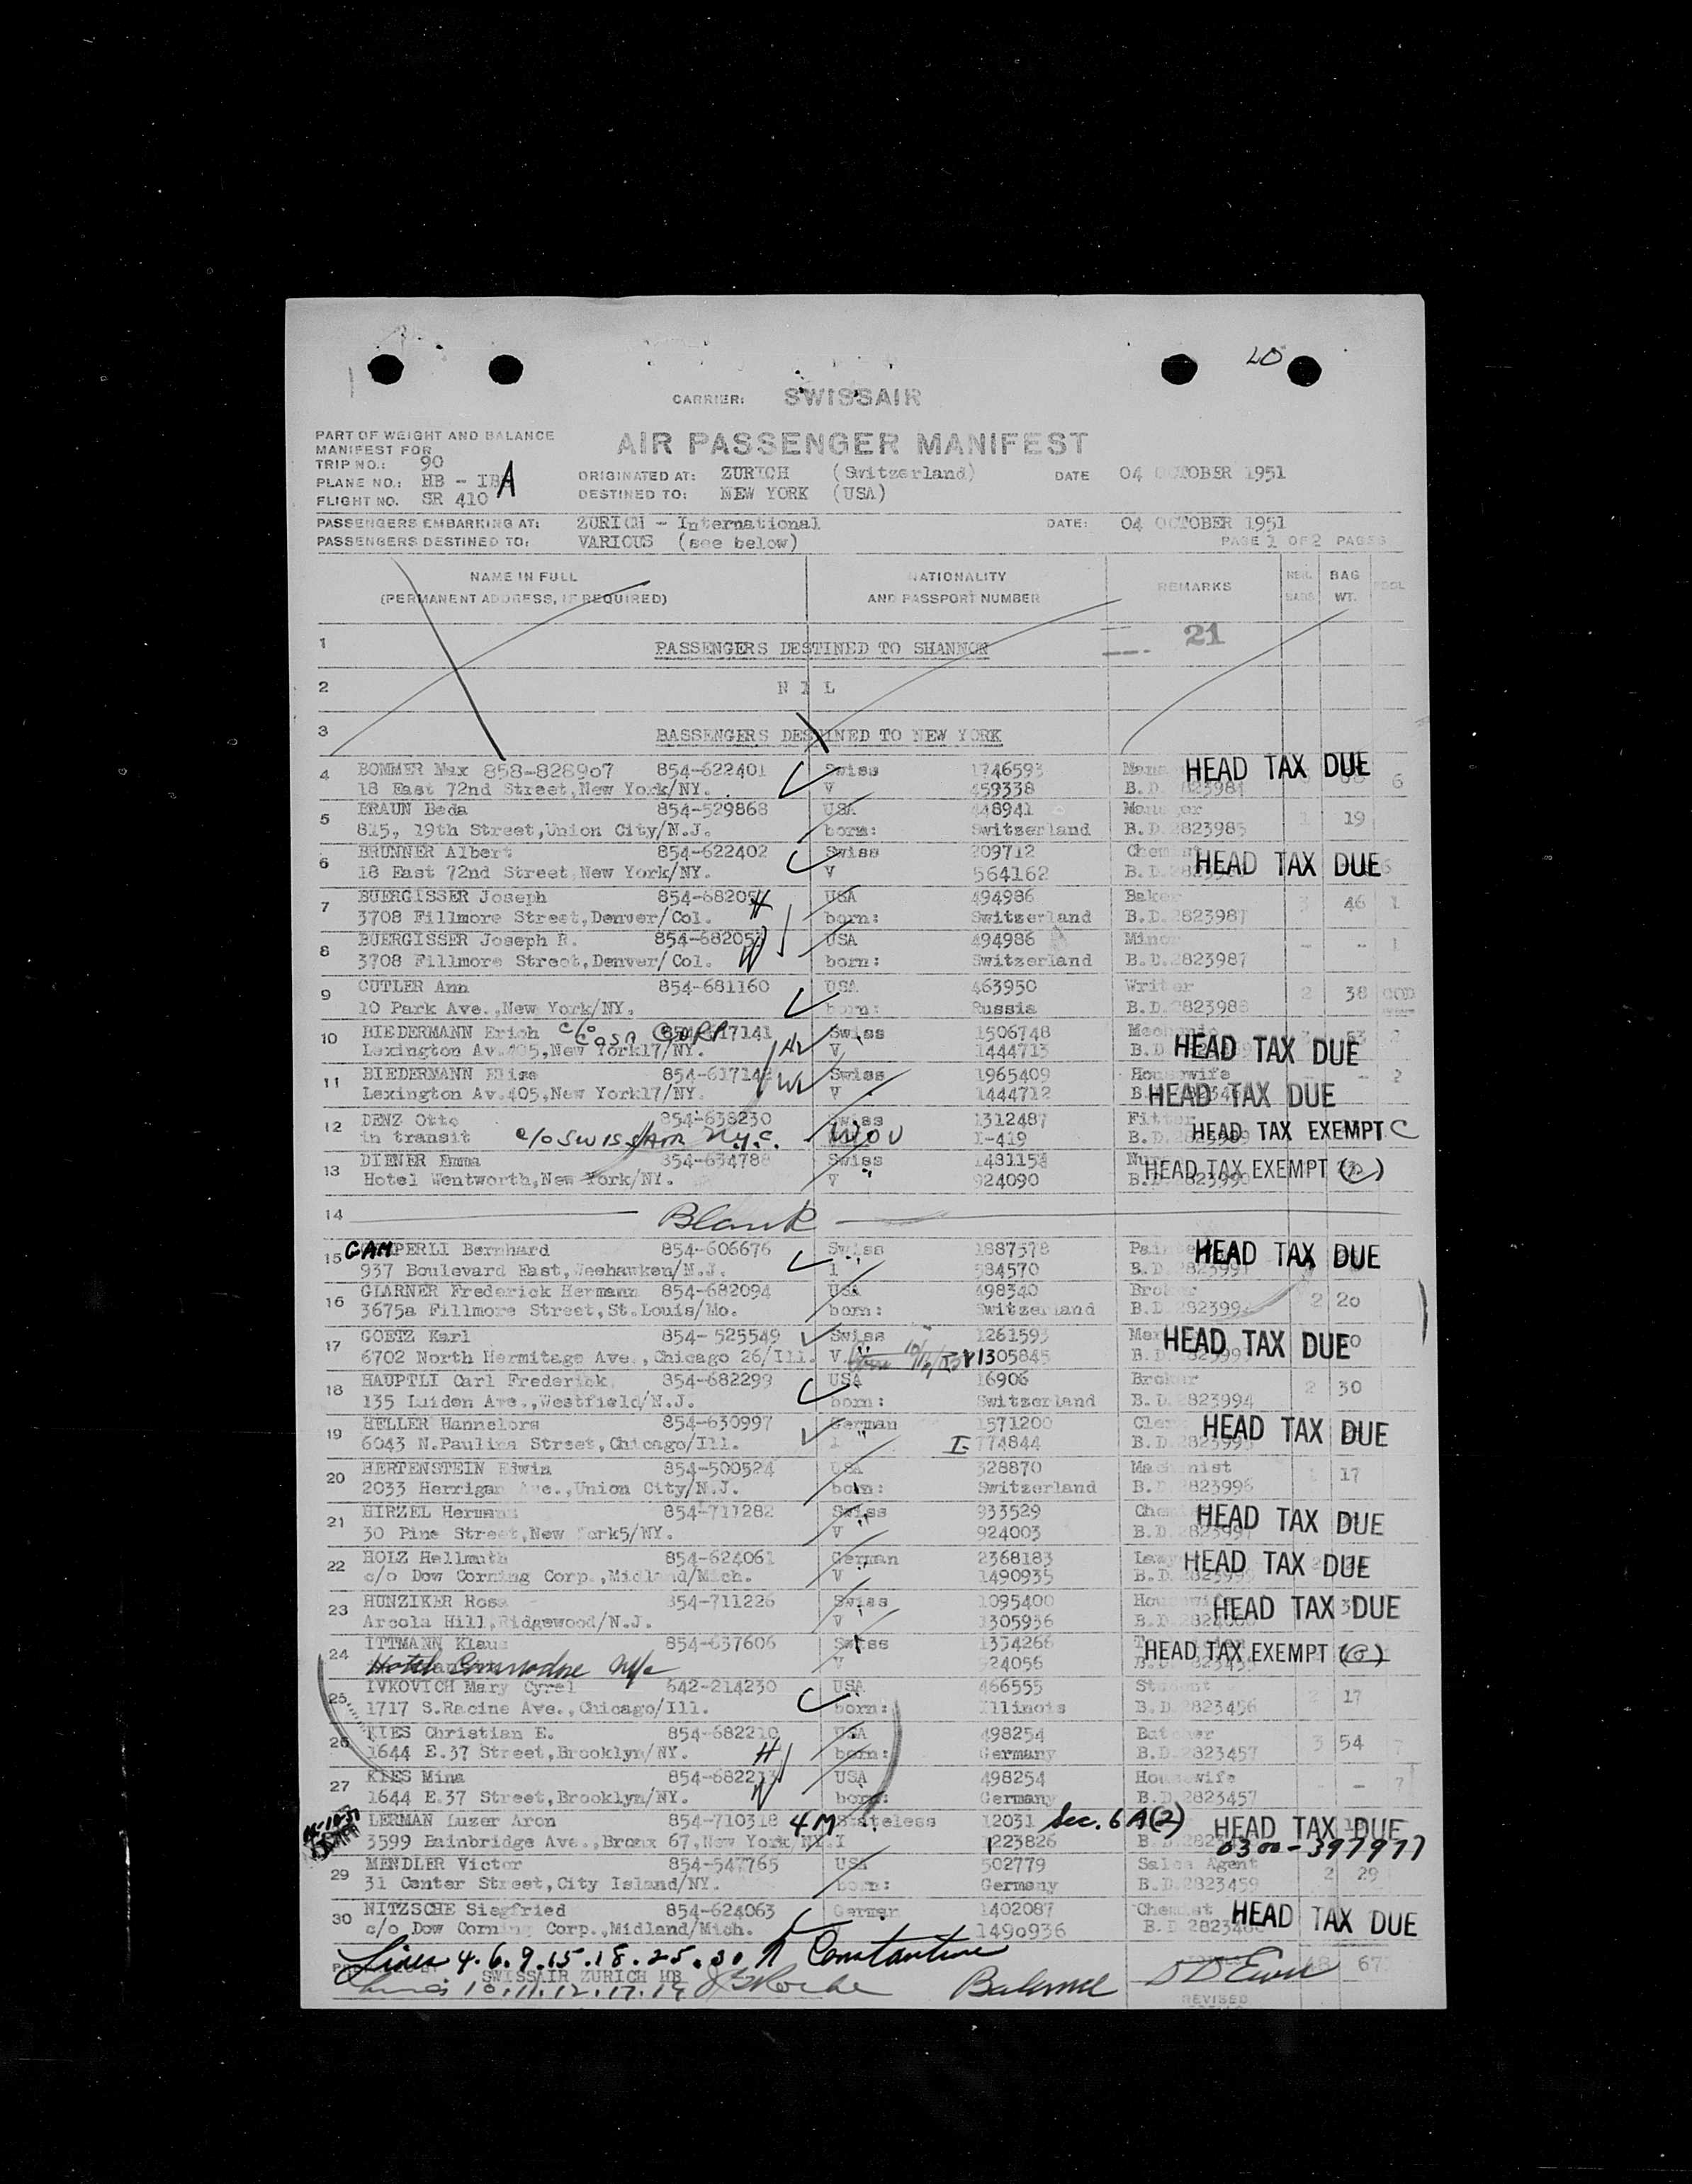 20
CARRIER: SWISSAIR
PART OF WEIGHT AND BALANCE
MANIFEST FOR
AIR PASSENGER MANIFEST
TRIP NO.: 90
PLANE NO.: HB - IB A
FLIGHT NO. SR 410
ORIGINATED AT: ZURICH (Switzerland) DATE 04 OCTOBER 1951
DESTINED TO: NEW YORK (USA)
PASSENGERS EMBARKING AT: ZURICH - International DATE: 04 OCTOBER 1951
PASSENGERS DESTINED TO: VARIOUS (see below) PAGE 1 OF 2 PAGES
NAME IN FULL NATIONALITY REMARKS BAG
(PERMANENT ADDRESS, IF REQUIRED) AND PASSPORT NUMBER WT.
1 PASSENGERS DESTINED TO SHANNON 21
2 N I L
3 BASSENGERS DESTINED TO NEW YORK
4 BOMMER Max 858-828907 854-622401 Swiss 1746593 HEAD TAX DUE
18 East 72nd Street,New York/NY. V 459338 B.D. 6
5 BRAUN Beda 854-529868 USA 448941 1 19
815, 19th Street,Union City/N.J. born: Switzerland B.D.2823985
6 BRUNNER Albert 854-622402 Swiss 209712 HEAD TAX DUE
18 East 72nd Street New York/NY. V 564162 B.D.
7 BUERGISSER Joseph 854-68205 H USA 494986 Baker 3 46 1
3708 Fillmore Street,Denver/Col. born: Switzerland B.D.2823987
8 BUERGISSER Joseph R. 854-68205 USA 494986 Minor - - 1
3708 Fillmore Street,Denver/Col. born: Switzerland B.D.2823987
9 CUTLER Ann 854-681160 USA 463950 Writer 2 38 COD
10 Park Ave.,New York/NY. born: Russia B.D.2823988
10 BIEDERMANN Erich c/o Cosa Corp 854-617141 Swiss 1506748 Mechanic
Lexington Av.405,New York17/NY. V 1444713 B.D. HEAD TAX DUE
11 BIEDERMANN Elise 854-617142 Swiss 1965409 Housewife - - 2
Lexington Av.405,New York17/NY. V 1444712 HEAD TAX DUE
12 DENZ Otto 854-638230 Swiss 1312487 Fitter
in transit c/o SWISSAIR N.Y.C. WOV I-419 B.D. HEAD TAX EXEMPT C
13 DIENER Emma 854-634788 Swiss
Hotel Wentworth,New York/NY. V 924090 HEAD TAX EXEMPT
14 Blank
15 GAMPERLI Bernhard 854-606676 Swiss 1887578 HEAD TAX DUE
937 Boulevard East,Weehawken/N.J. I 584570 B.D.
16 GLARNER Frederick Hermann 854-682094 USA 498340 Broker 2 20
3675a Fillmore Street,St.Louis/Mo. born: Switzerland B.D.
17 GOETZ Karl 854- 525549 Swiss 1261593 HEAD TAX DUE
6702 North Hermitage Ave.,Chicago 26/Ill. V 1305845
18 HAUPTLI Carl Frederick 854-682299 USA 16906 Broker 2 30
135 Luiden Ave.,Westfield/N.J. born: Switzerland B.D.2823994
19 HELLER Hannelore 854-630997 German 1571200 HEAD TAX DUE
6043 N.Paulina Street,Chicago/Ill. I-774844 B.D.2823995
20 HERTENSTEIN Edwin 854-500524 USA 328870 Machinist 1 17
2033 Herrigan Ave.,Union City/N.J. born: Switzerland B.D.2823996
21 HIRZEL Hermann 854-711282 Swiss 933529 HEAD TAX DUE
30 Pine Street,New York5/NY. V 924003 B.D.2823997
22 HOLZ Hellmuth 854-624061 German 2368183 HEAD TAX DUE
c/o Dow Corning Corp.,Midland/Mich. V 1490935 B.D.
23 HUNZIKER Rosa 854-711226 Swiss 1095400 Housewife HEAD TAX DUE
Arcola Hill,Ridgewood/N.J. V 1305936 B.D.
24 ITTMANN Klaus 854-637606 Swiss 1334266 HEAD TAX EXEMPT
Hotel Commodore NYC V 924056
25 IVKOVICH Mary Cyrel 642-214230 USA 466555 Student 2 17
1717 S.Racine Ave.,Chicago/Ill. born: Illinois B.D.2823456
26 KIES Christian E. 854-682210 USA 498254 Butcher 3 54 7
1644 E.37 Street,Brooklyn/NY. H born: Germany B.D.2823457
27 KIES Mina 854-68221 USA 498254 Housewife - - 7
1644 E.37 Street,Brooklyn/NY. W born: Germany B.D.2823457
LERMAN Luzer Aron 854-710318 4M Stateless 12031 Sec. 6A(2) HEAD TAX DUE
3599 Bainbridge Ave.,Bronx 67,New York/NY. I 1223826 0300-397977
29 MENDLER Victor 854-547765 USA 502779 Sales Agent 2 29
31 Center Street,City Island/NY. born: Germany B.D.2823459
30 NITZSCHE Siegfried 854-624063 German 1402087 Chemist HEAD TAX DUE
c/o Dow Corning Corp.,Midland/Mich. 1490936 B.D.
Lines 4.6.9.15.18.25.30 Constantine
SWISSAIR ZURICH HB 67
Lines 10.11.12.17.19 Balance
REVISED